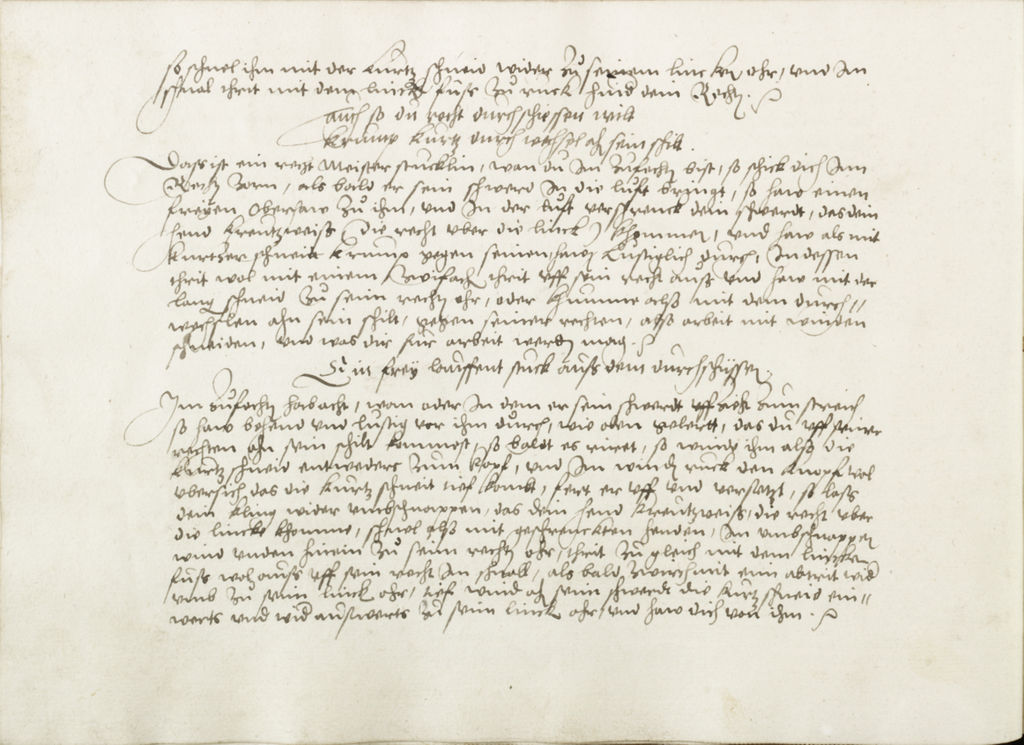 so schnel ihm mit der kurtz schneid wider zu seinem lincken ohr, vnd im
schnal thrit mit dem linck fuss zu ruck hind dem Rechten.
Auch so du recht durchschiessen wilt
Krump kurtz durchwechsel ahn sein schilt.
Dass ist ein recht Meister stucklin, wan du im zufechten bist, so schick dich Inn
Recht zorn, als baild er sein schwerd In die luft bringt, so haw einen
freyen Oberhaw zu ihm, vnd In der luft verschrenck dein schwerdt, das dein
hend kreutzweiss (die recht vber die linck) khommen, vnd haw als mit
kurtzer schneid krump gegen seinen haw lustiglich durch, Indessen
thrit wol mit einem zwifachen thrit vff sein recht auss vnd haw mit der
lang schneid zu seim rechten ohr, oder khumme alss mit dem durch=
wechslen ahn sein schilt, gegen seiner rechten, alss arbeit mit winden
schneiden, vnd was dir fur arbeit werden mag.
Ein frey lauffent stuck auss dem durchschiessen.
Im zufechten hab acht, wan oder In dem er sein schwerdt vff zicht zum streich
so haw behend vnd lustig vor ihm durch, wie oben gelert, das du vff seiner
rechten ahn sein schilt kommest, so baldt es ruret, so winde ihm also die
kurtz schneid entweders zum kopf, vnd Im winden ruck den knopf wol
vbersich das die kurtz schneit tief kombt, fert er vff vnd versetzt, so lass
dein kling wider vmbschnappen, das dein hend kreutzweiss, die recht vber
die lincke khomme, schnel alss mit geschrenckten henden, Im vmbschnappen
wind vnden hinein zu seim rechten ohr, thrit zu gleich mit dem lincken
fuss wol auss vff sein recht Im schnall, als bald zwirch mit eim abtrit wid
vmb zu seim linck ohr, tief wind ahn seim schwerdt die kurtz schneid ein=
werts vnd wid ausswerts zu seim linck ohr, vnd haw dich von ihm.